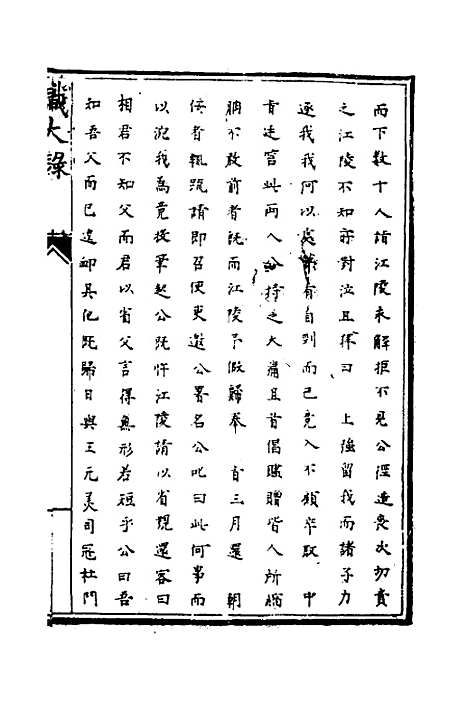 而下数十人請江陵未解拒不見公徑造喪次切責
之江陵不知所對泣且拜曰 上強留我而諸子力
逐我我何以處 有自剄而已竟入不顧卒取 中
肯廷官此兩人公持之大痛且首倡賻贈皆人所
不敢前者既而江陵予假歸奉 旨三月還 朝
佞者輒疏請即召使吏邀公署名公叱曰此何事而
以浼我為竟投筆起公既忤江陵請以省覲還客曰
相君不知父而君以省父言得無形若短乎公曰吾
知吾父而已遑卹其他既歸日與王元美司寇杜門
識大錄